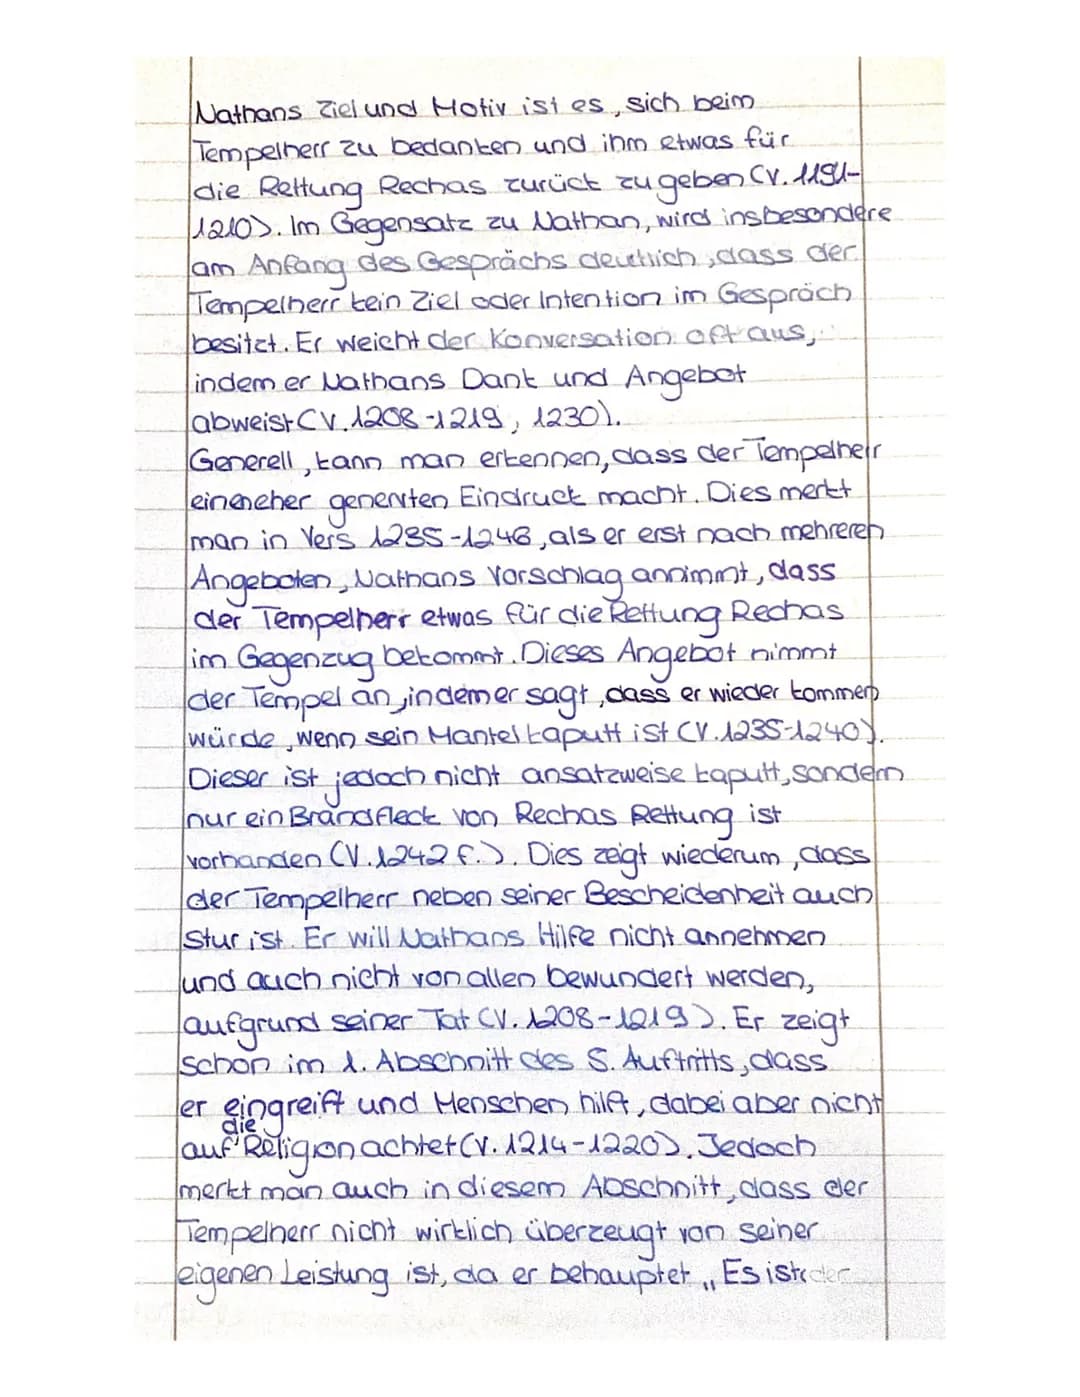 Nathans Ziel und Motiv ist es, sich beim
Tempelherr zu bedanken und ihm etwas für
die Rettung Rechas zurück zu geben (V. 1194-
1210). Im Gegensatz zu Nathan, wird insbesondere
am Anfang des Gesprächs deutlich, dass der
Tempelherr kein Ziel oder Intention im Gespräch
besitzt. Er weicht der Konversation oft aus,
indem er Nathans Dank und Angebot
abweist (V. 1208-1219, 1230).
Generell, kann man erkennen, dass der Tempelherr
einen eher genervten Eindruck macht. Dies merkt
man in Vers 1235-1248, als er erst nach mehreren
Angeboten, Nathans Vorschlag annimmt, dass
der Tempelherr etwas für die Rettung Rechas
im Gegenzug bekommt. Dieses Angebot nimmt
der Tempel an, indem er sagt, dass er wieder kommen
würde, wenn sein Mantel kaputt ist (V. 1235-1240).
Dieser ist jedoch nicht ansatzweise kaputt, sondern
nur ein Brandfleck von Rechas Rettung ist
vorhanden (V. 1242 f.). Dies zeigt wiederum, dass
der Tempelherr neben seiner Bescheidenheit auch
Stur ist. Er will Nathans Hilfe nicht annehmen
und auch nicht von allen bewundert werden,
aufgrund seiner Tat (V. 1208-1219). Er zeigt
schon im 1. Abschnitt des 5. Auftritts, dass
er eingreift und Menschen hilft, dabei aber nicht
auf die Religion achtet (V. 1214-1220). Jedoch
merkt man auch in diesem Abschnitt, dass der
Tempelherr nicht wirklich überzeugt von seiner
eigenen Leistung ist, da er behauptet „Es ist der